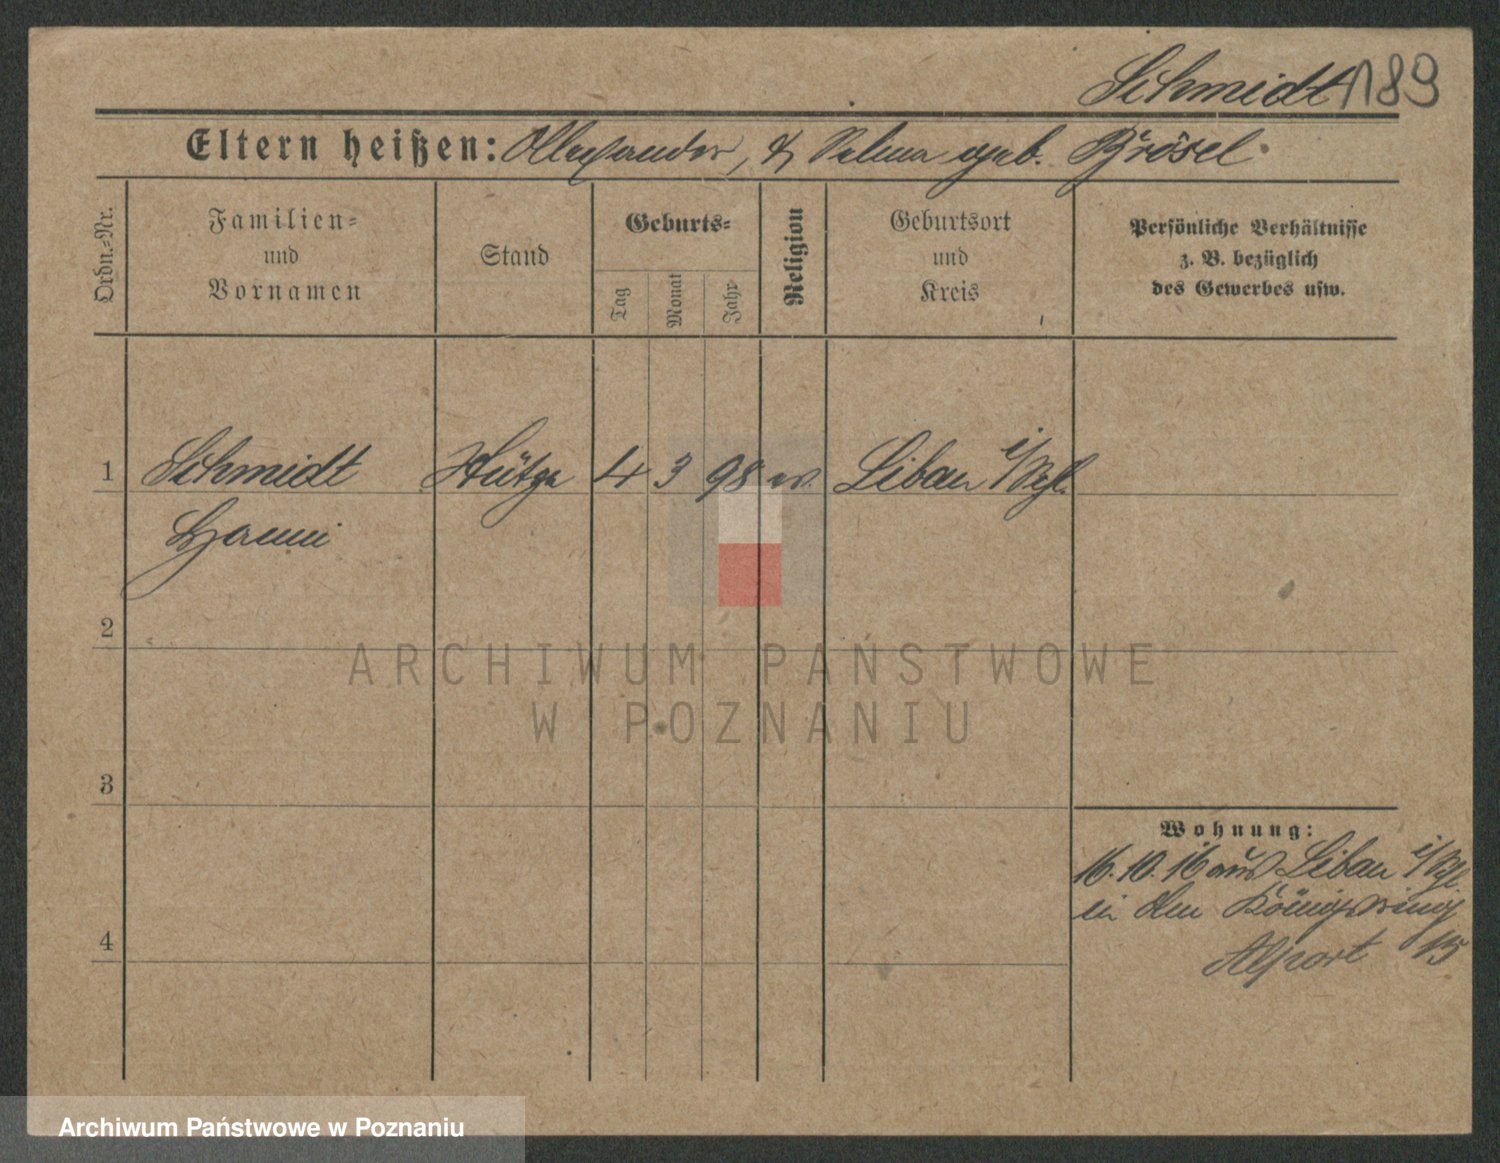 Schmidt 189
Eltern heißen: Allexander, & Selma geb. Brösel
Ordn.-Nr.
Familien-
und
Vornamen
Stand
Geburts-
Tag
Monat
Jahr
Religion
Geburtsort
und
Kreis
Persönliche Verhältnisse
z. B. bezüglich
des Gewerbes usw.
1 Schmidt Stütze 4 3 98 ev. Libau i/
Hanni
2
3
4
Wohnung:
16.10.16 aus Libau i/
in Königsring
15
ARCHIWUM PAŃSTWOWE
W POZNANIU
Archiwum Państwowe w Poznaniu